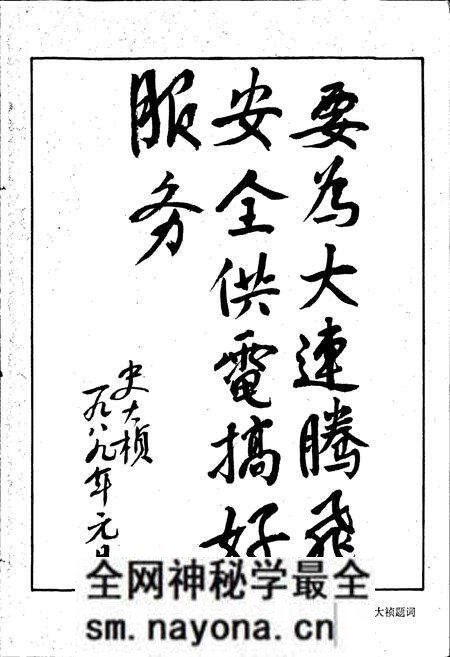 要為大連騰飛
安全供電搞好
服务
史大桢
一九八九年元
全网神秘学最全
sm.nayona.cn
大祯题词